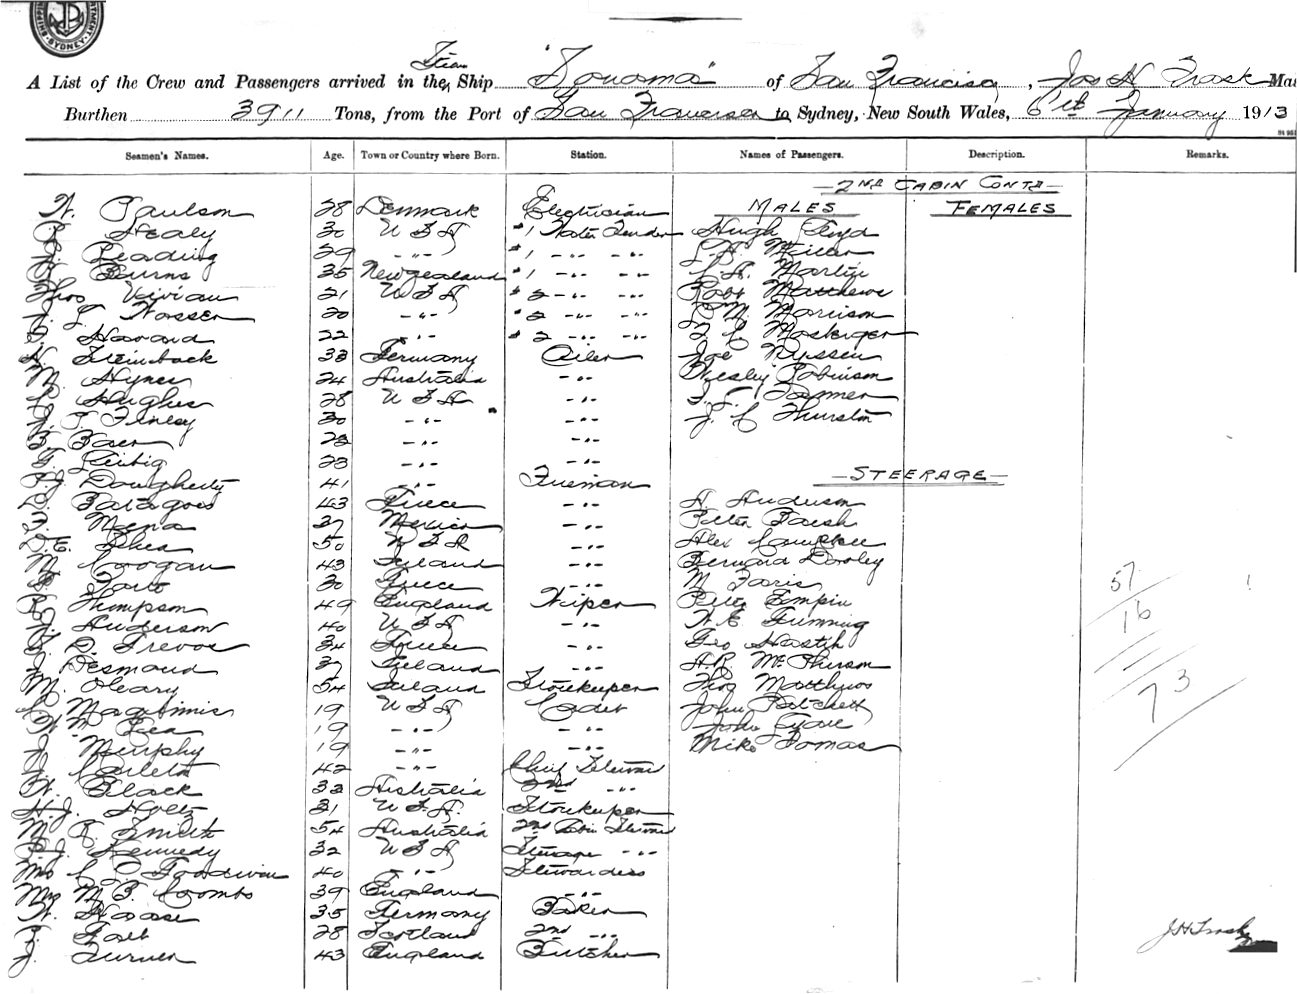 SYDNEY
Steam
A List of the Crew and Passengers arrived in the Ship "Sonoma" of San Francisco, Jos H Trask Mas
Burthen 3911 Tons, from the Port of San Francisco to Sydney, New South Wales, 6th January 1913
Seamen's Names. Age. Town or Country where Born. Station. Names of Passengers. Description. Remarks.
—2ND CABIN CONTD—
W. Paulson 28 Denmark Electrician MALES FEMALES
Healy 30 U S A #1 Water Tender Hugh Lloyd
Reading 29 -"- #1 -"- -"- Miller
Burns 35 New Zealand #1 -"- -"- Martin
Thos Vivian 21 U S A #2 -"- -"- Robt Matthews
20 -"- #2 -"- -"- M. Morrison
Havard 22 -"- #2 -"- -"-
Steinback 38 Germany Oiler Joe Nyssen
M. Hynes 24 Australia -"- Wesley Robinson
Hughes 28 U S A -"- Tanner
J. T. Finley 30 -"- -"- J. C Thurston
Baer 28 -"- -"-
G. Liebig 28 -"- -"-
P.J. Dougherty 41 -"- Fireman —STEERAGE—
D. Batagoes 43 Greece -"- A Anderson
Mena 37 Mexico -"- Peter Barsh
D.E. Shea 50 U S A -"- Alex Campbell
M Coogan 43 Ireland -"- Bernard Dooley
30 Greece -"- M Faris
R Thompson 49 England Wiper Peter Empin
Anderson 40 U S A -"- W E Fleming
D. Trevor 34 Greece -"- Geo Hastih
J Desmond 37 Ireland -"- H.R. McPherson
M. Oleary 54 Ireland Storekeeper Thos Matthews
Magennis 19 U S A Cadet John Patchett
W M Rea 19 -"- -"- John
J Murphy 19 -"- -"- Mike Tomas
J Carleton 42 -"- Chief Steward
W. Black 32 Australia 2nd -"-
H.J. Holtz 31 U. S. A. Storekeeper
M. R. Smith 54 Australia 2nd Cabin Steward
P.J. Kennedy 32 U S A Steerage -"-
Mrs C Goodwin 40 -"- Stewardess
Mrs M. B. Coombs 39 England -"-
W. Haase 35 Germany Baker
28 Scotland 2nd -"-
J. Turner 43 England Butcher
57
16
73
J H Trask